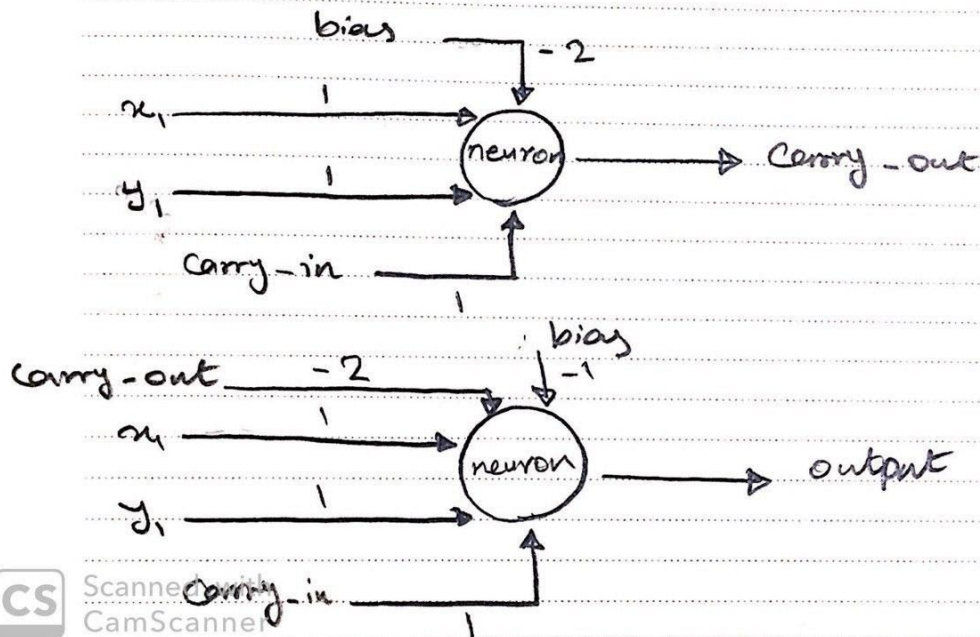 bias
-2
1
x₁
neuron
carry-out
1
y₁
carry-in
1
bias
-1
carry-out
-2
1
x₁
neuron
output
1
y₁
carry-in
1
CS
Scanned with
CamScanner